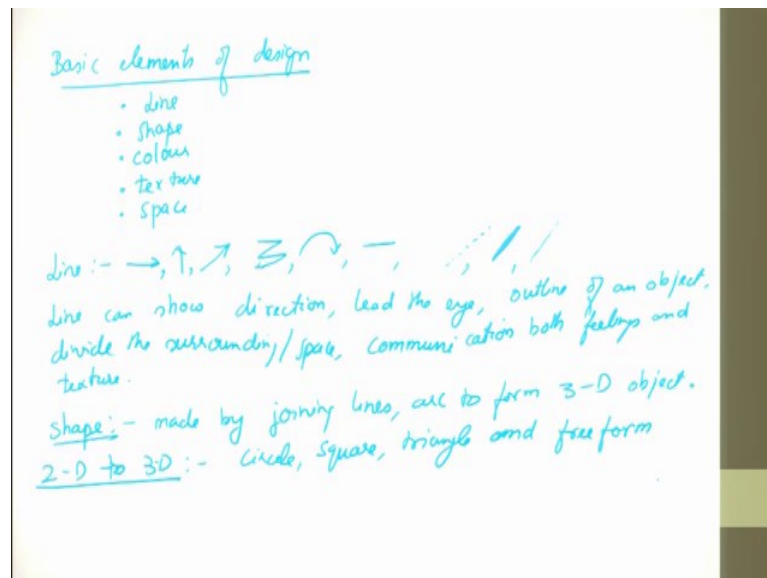 Basic elements of design
• Line
• Shape
• colour
• texture
• space
Line :- →, ↑, ↗, , , —, , ,
Line can show direction, lead the eye, outline of an object,
divide the surrounding/space, communication both feelings and
texture.
Shape :- made by joining lines, arc to form 3-D object.
2-D to 3-D :- circle, square, triangle and freeform